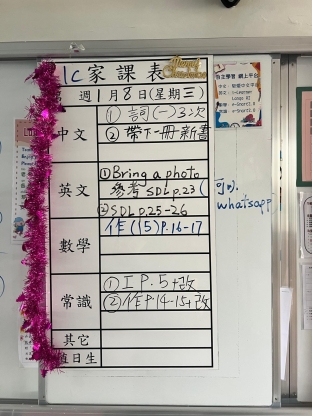 1C家課表
週1月8日(星期三)
中文
①詞(一)3次
②帶下一冊新書
英文
①Bring a photo
參考SDL p.23(可以
whatsapp
②SDL p.25-26
數學
作(15)P.16-17
常識
①I P.5+改
②作P.14-15+改
其它
值日生
自主學習 網上平台